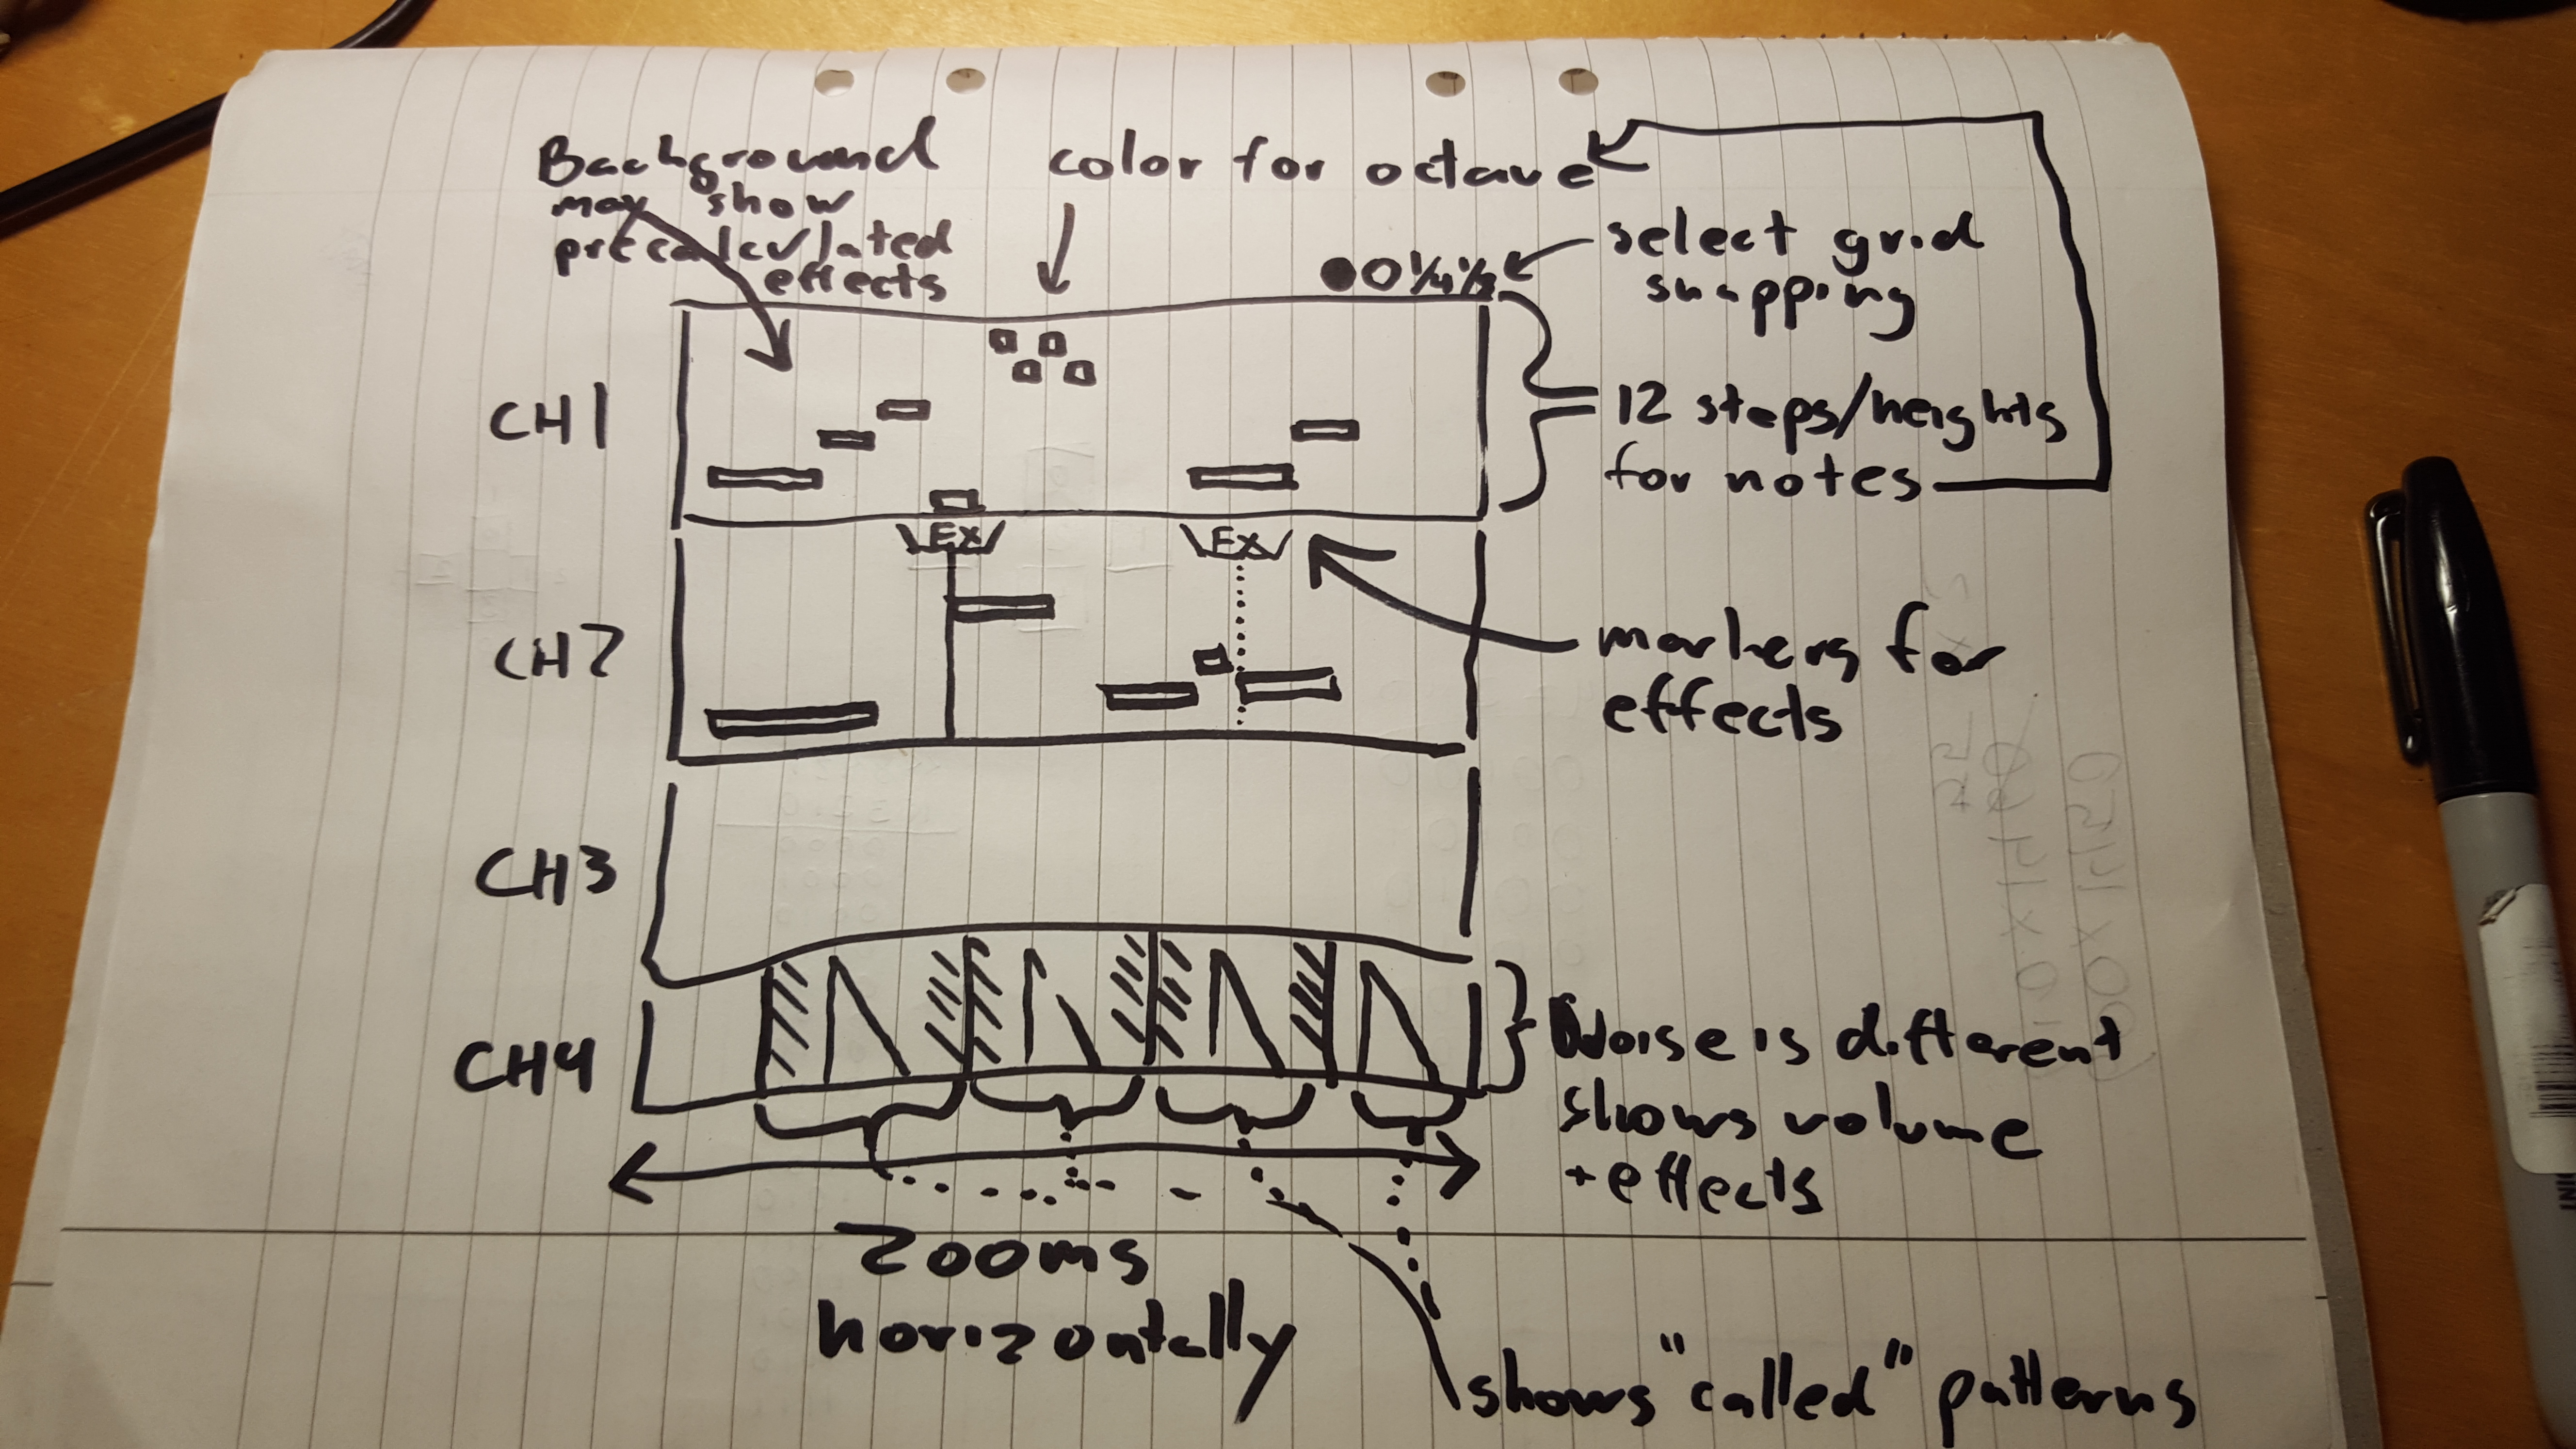 Background
may show
precalculated
effects
color for octave
select grid
snapping
CH1
12 steps/heights
for notes
EX
EX
CH2
markers for
effects
CH3
CH4
Noise is different
shows volume
+ effects
zooms
horizontally
shows "called" patterns